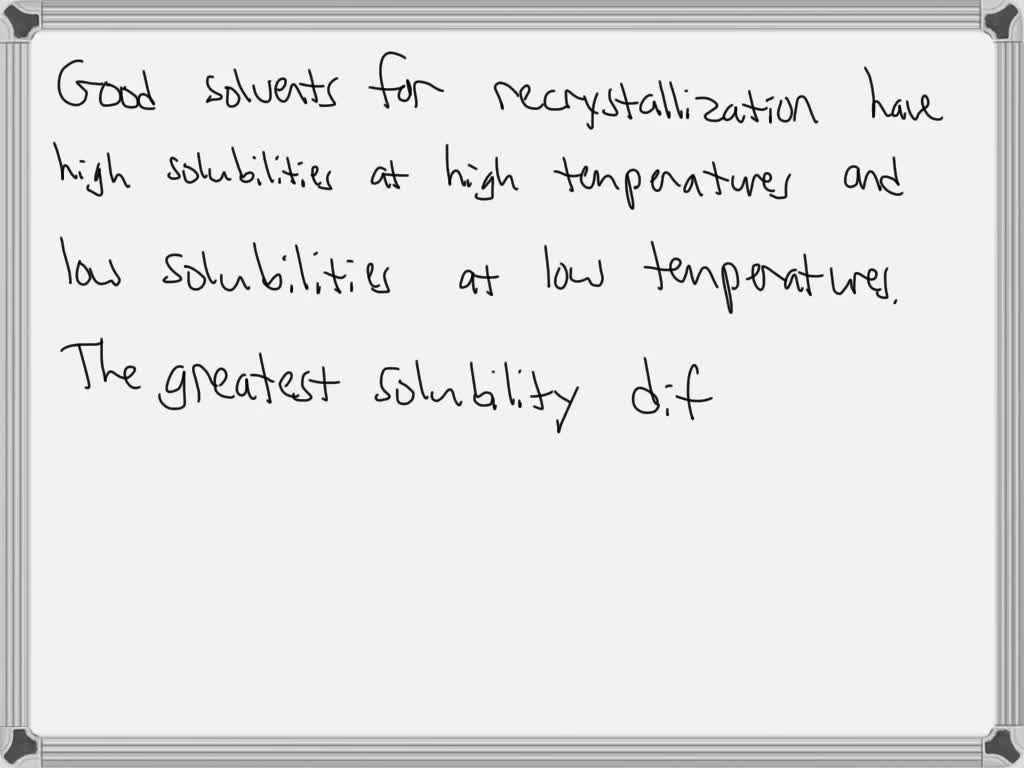 Good solvents for recrystallization have
high solubilities at high temperatures and
low solubilities at low temperatures.
The greatest solubility dif